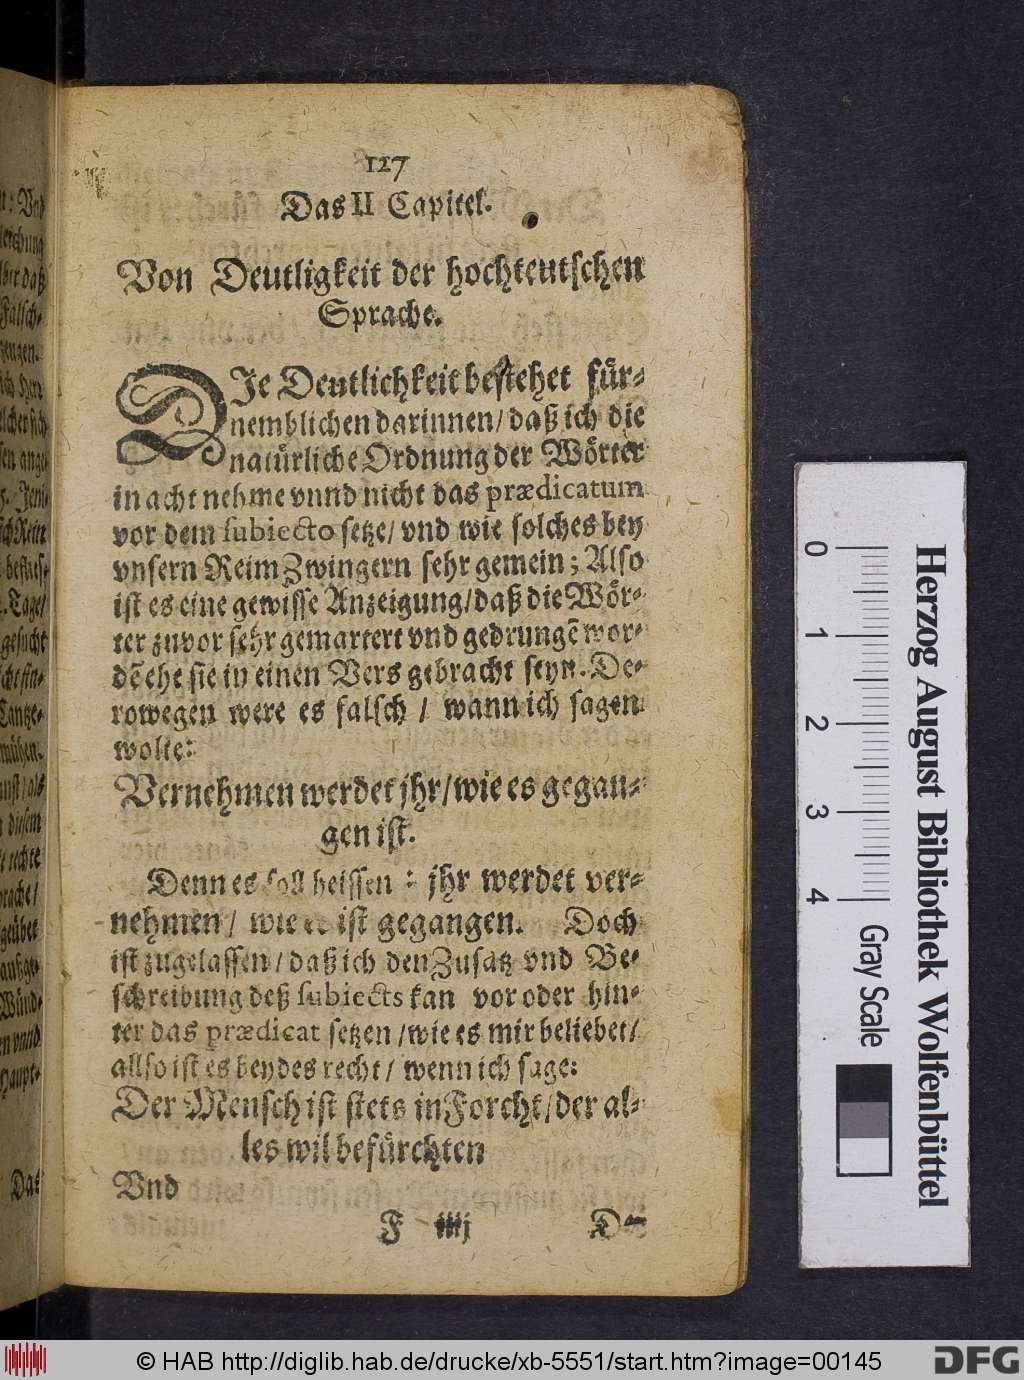 127
Das II Capitel.
Von Deutligkeit der hochteutschen
Sprache.
DJe Deutlichkeit bestehet für-
nemblichen darinnen/ daß ich die
natürliche Ordnung der Wörter
in acht nehme vnnd nicht das prædicatum
vor dem subiecto setze/ vnd wie solches bey
vnsern Reim Zwingern sehr gemein; Also
ist es eine gewisse Anzeigung/ daß die Wör-
ter zuvor sehr gemartert vnd gedrungẽ wor-
dẽ ehe sie in einen Vers gebracht seyn. De-
rowegen were es falsch / wann ich sagen
wolte:
Vernehmen werdet jhr/ wie es gegan-
gen ist.
Denn es soll heissen : jhr werdet ver-
nehmen/ wie es ist gegangen. Doch
ist zugelassen/ daß ich den Zusatz vnd Be-
schreibung deß subiects kan vor oder hin-
ter das prædicat setzen /wie es mir beliebet/
allso ist es beydes recht/ wenn ich sage:
Der Mensch ist stets in Forcht/ der al-
les wil befürchten
Vnd
F iiij
Der
Das
0
1
2
3
4
Gray Scale
Herzog August Bibliothek Wolfenbüttel
© HAB http://diglib.hab.de/drucke/xb-5551/start.htm?image=00145
DFG